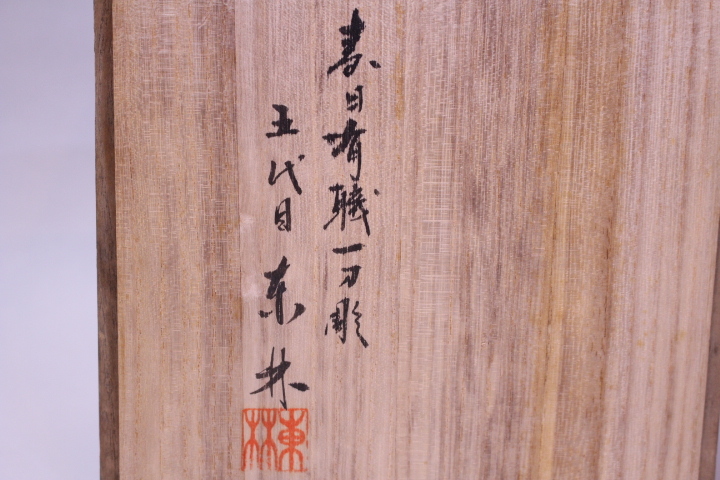 春日有職一刀彫
五代目 东林
東林